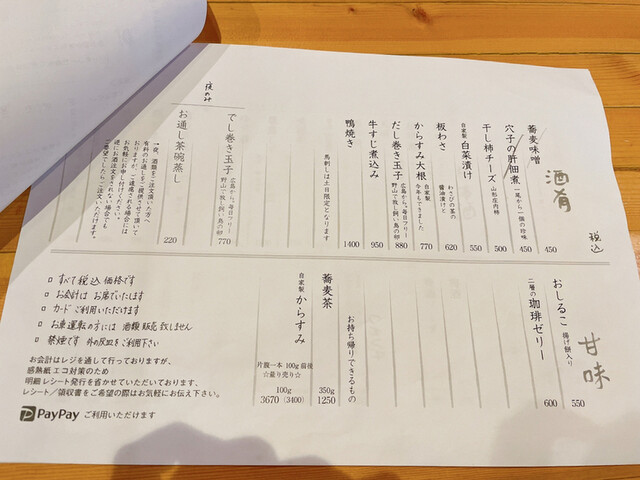 酒肴
税込
蕎麦味噌
450
穴子の肝佃煮 一尾から一個の珍味
450
干し柿チーズ 山形庄内柿
500
自家製 白菜漬け
550
板わさ わさびの茎の醤油漬けと
620
からすみ大根 自家製 今年もできました
770
だし巻き玉子 広島から。毎日フリー 野山で放し飼い鳥の卵
880
牛すじ煮込み
950
鴨焼き
1400
馬刺しは土日限定となります
夜のみ
だし巻き玉子 広島から。毎日フリー 野山で放し飼い鳥の卵
770
お通し茶碗蒸し
220
→夜、酒類をご注文頂いた方へ
有料のお通しをご提供させて頂いて
おりますが、ご遠慮される場合には
お気軽にお申し付けください。
逆にお酒注文をされない場合でも
ご希望でしたらご注文いただけます。
甘味
おしるこ 揚げ餅入り
550
二層の珈琲ゼリー
600
お持ち帰りできるもの
蕎麦茶
350g
1250
自家製 からすみ
片腹一本 100g前後
☆量り売り☆
100g
3670 (3400)
□ すべて税込価格です
□ お会計は お席でいたします
□ カードご利用いただけます
□ お車運転の方には 酒類販売致しません
□ 禁煙です 外の灰皿をご利用下さい
お会計はレジを通して行っておりますが、
感熱紙エコ対策のため
明細レシート発行を省かせていただいております、
レシート/領収書をご希望の際はお気軽にお伝え下さい。
PayPay ご利用いただけます